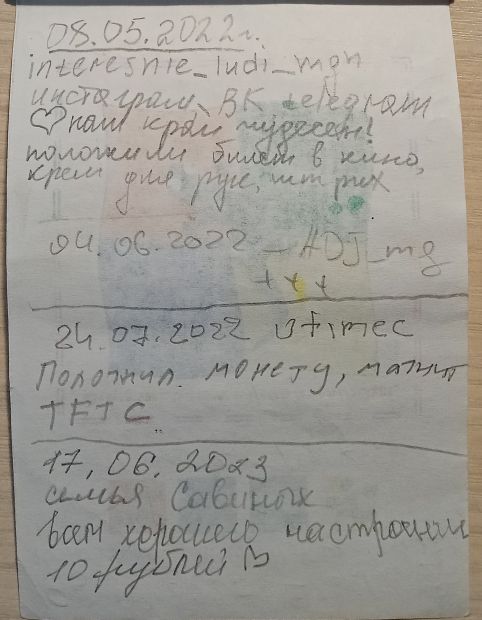 08.05.2022г.
interesnie_ludi_mgn
инстаграм, ВК telegram
♡ наш край чудесен!
положили билет в кино,
крем для рук, штрих
04.06.2022 - ADJ_mg
+++
24.07.2022 ufimec
Положил монету, магнит
TFTC
17, 06. 2023
семья Савиных
всем хорошего настроения
10 рублей